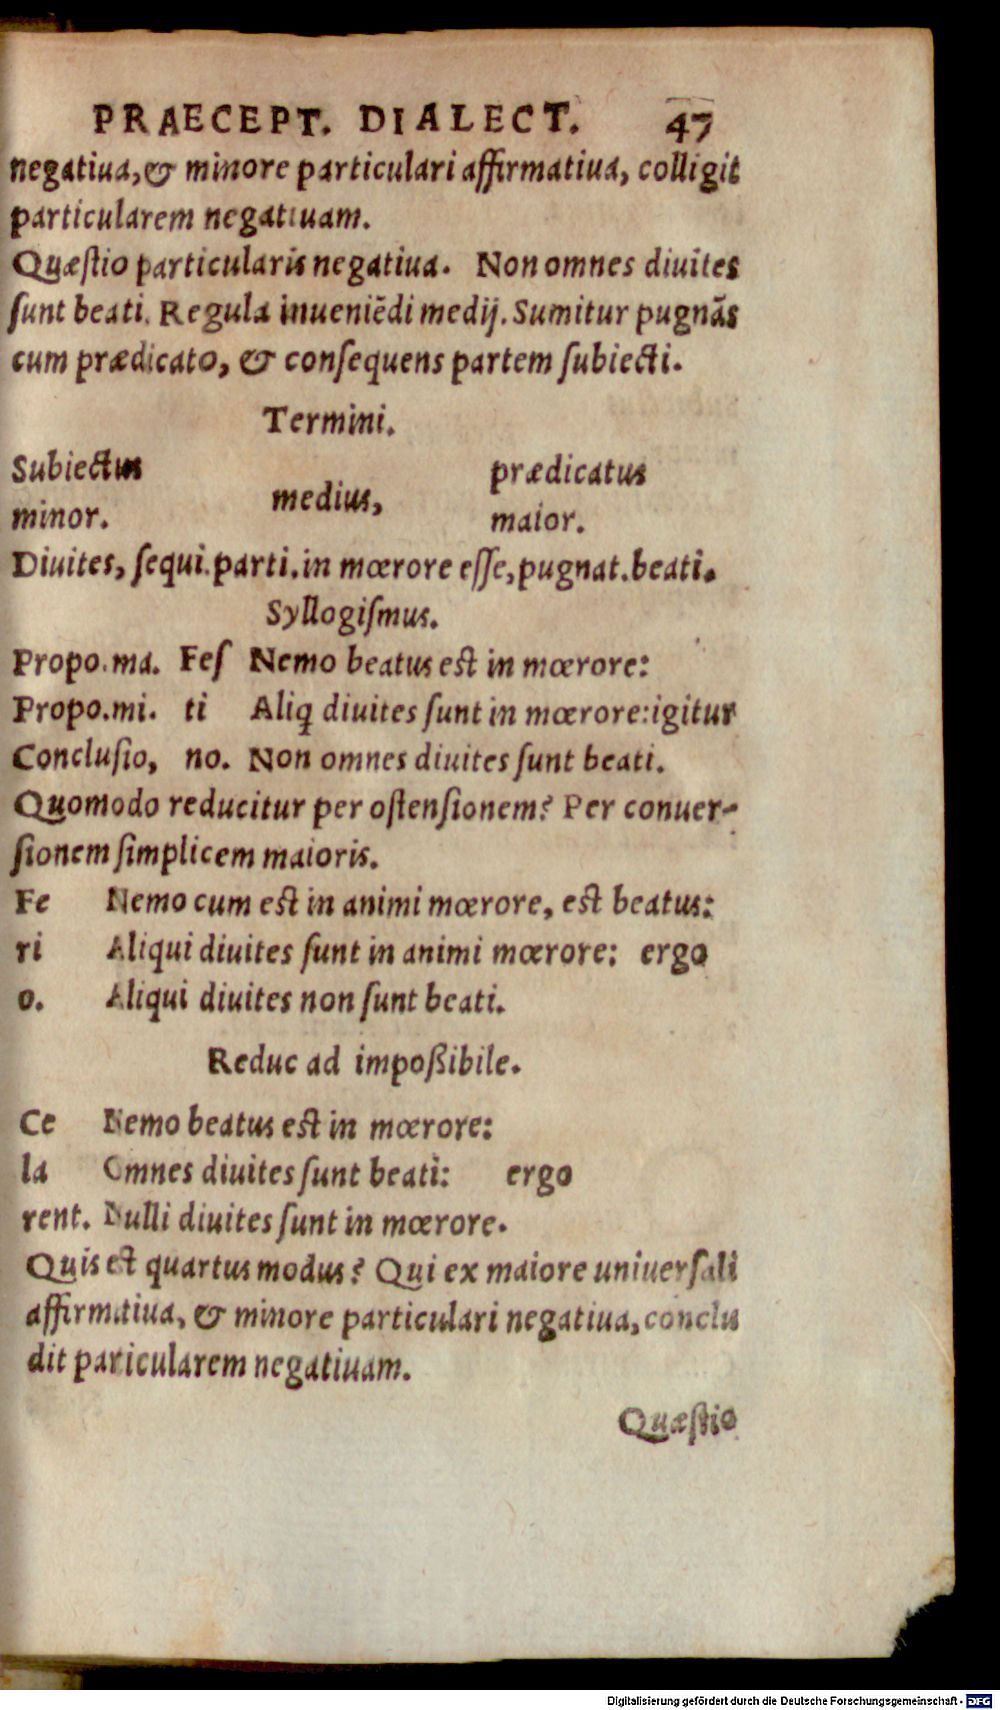 PRAECEPT. DIALECT. 47
negatiua, & minore particulari affirmatiua, colligit
particularem negatiuam.
Quæſtio particularis negatiua. Non omnes diuites
ſunt beati. Regula inueniẽdi medij. Sumitur pugnãs
cum prædicato, & conſequens partem ſubiecti.
Termini.
Subiectus medius, prædicatus
minor. maior.
Diuites, ſequi.parti.in mœrore eſſe, pugnat.beati.
Syllogiſmus.
Propo.ma. Feſ Nemo beatus est in mœrore:
Propo.mi. ti Aliq diuites ſunt in mœrore:igitur
Concluſio, no. Non omnes diuites ſunt beati.
Quomodo reducitur per oſtenſionem? Per conuer-
ſionem ſimplicem maioris.
Fe Nemo cum est in animi mœrore, est beatus:
ri Aliqui diuites ſunt in animi mœrore: ergo
o. Aliqui diuites non ſunt beati.
Reduc ad impoßibile.
Ce Nemo beatus est in mœrore:
la Omnes diuites ſunt beati: ergo
rent. Nulli diuites ſunt in mœrore.
Quis est quartus modus? Qui ex maiore uniuerſali
affirmatiua, & minore particulari negatiua, conclu
dit paricularem negatiuam.
Quæſtio
Digitalisierung gefördert durch die Deutsche Forschungsgemeinschaft - DFG